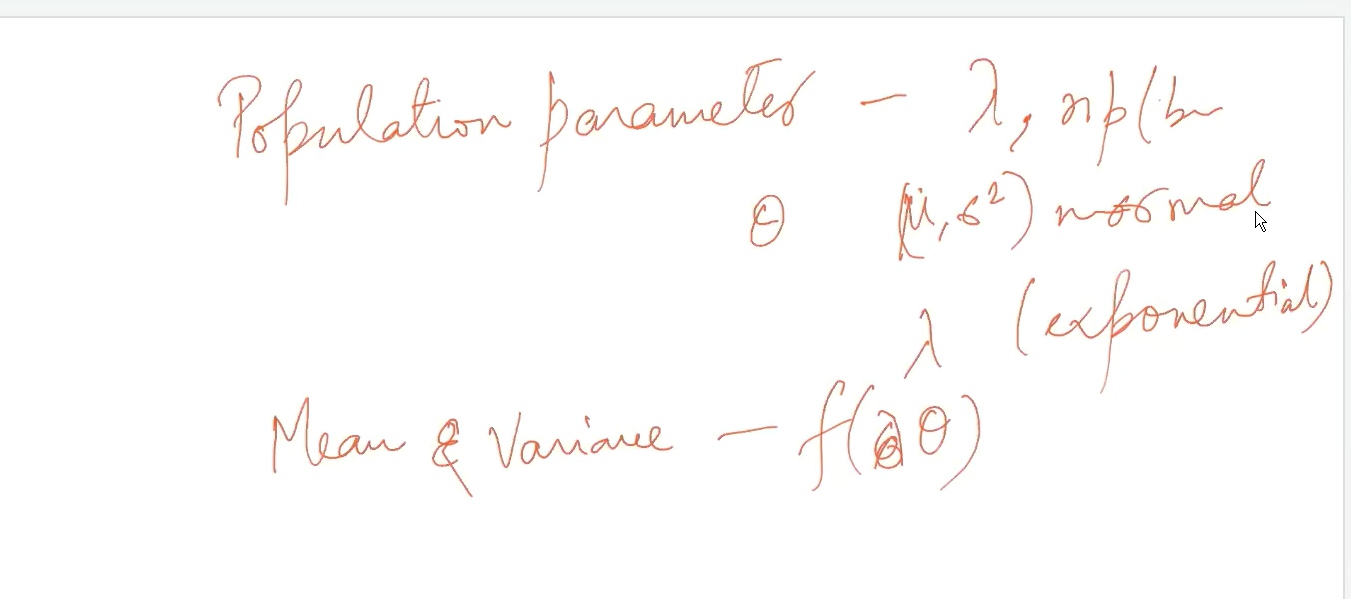 Population parameter - λ, np (bn
θ (μ, σ²) normal
λ (exponential)
Mean & Variance - f(θ)